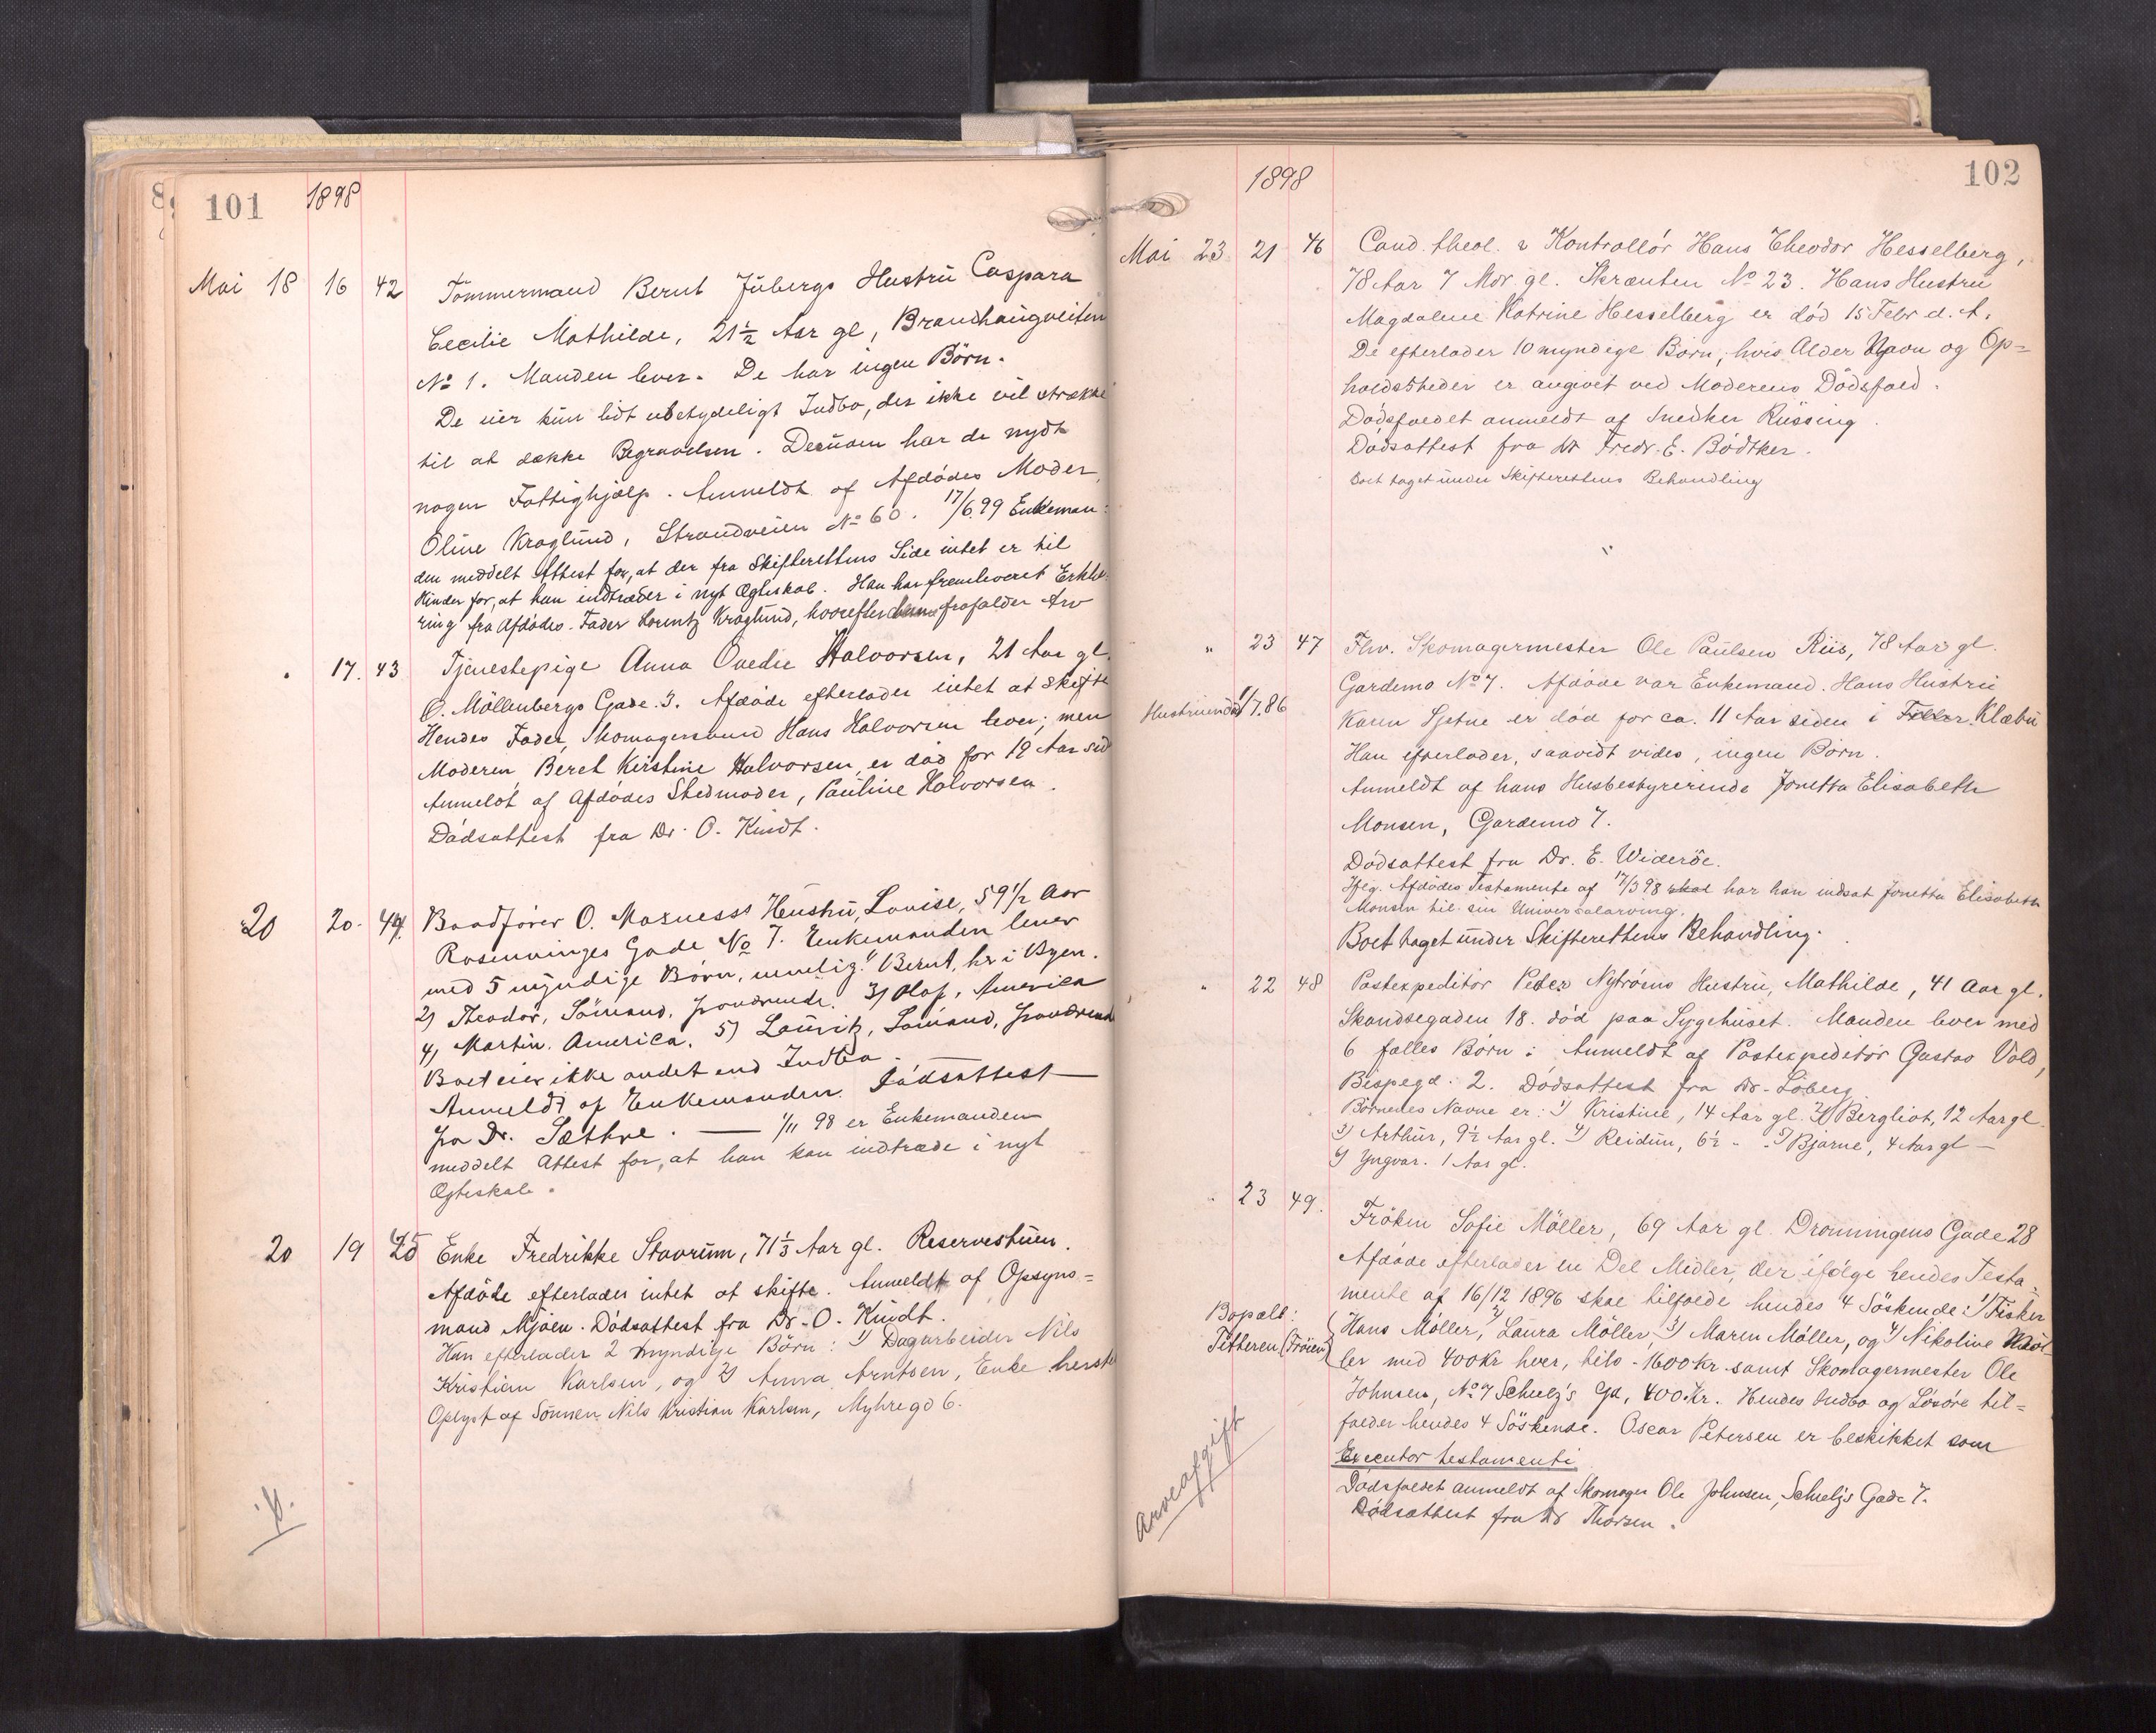 101 1898
Mai 18 16 42 Tømmermand Bernt Jübergs Hustru Caspara
Cecilie Mathilde, 21½ Aar gl, Brandhaugveiten
№ 1. Manden lever. De har ingen Börn.
De eier kun lidt ubetydeligt Indbo, der ikke vil strække
til at dække Begravelsen. Desuden har de nydt
nogen Fattighjælp. Anmeldt af Afdødes Moder,
Oline Kraglund, Strandveien № 60. 17/6.99 Enkeman=
den meddelt Attest for, at der fra Skifterettens Side intet er til
Hinder for, at han indtræder i nyt Ægteskab. Han har fremleveret Erklæ-
ring fra Afdødes Fader Lorentz Kraglund, hvorefter frafalder Arv
" 17. 43 Tjenestepige Anna Ovedie Halvorsen, 21 Aar gl.
O. Möllenbergs Gade. 3. Afdøde efterlader intet at skifte
Hendes Fader, Skomagersvend Hans Halvorsen lever; men
Moderen Beret Kirstine Halvorsen er død for 19 Aar sid
Anmeldt af Afdødes Stedmoder, Pauline Halvorsen.
Dödsattest fra Dr. O. Kindt.
20 20. 44 Baadfører O. Moxness's Hustru, Lovise, 59 1/2 Aar
Rosenvinges Gade № 7. Enkemanden lever
med 5 myndige Börn, nemlig: 1) Bernt, her i Byen.
2) Theodor, Sömand, fraværende. 3) Olaf, America
4) Martin. America. 5) Lauritz, Sömand, fraværende
Boet eier ikke andet end Indbo. —
Anmeldt af Enkemanden. Dödsattest
fra Dr. Sæthre. — 1/11 98 er Enkemanden
meddelt Attest for, at han kan indtræde i nyt
Ægteskab.
20 19 45 Enke Fredrikke Stavrum, 71⅓ Aar gl. Reservestuen.
Afdöde efterlader intet at skifte. Anmeldt af Opsyns=
mand Mjøen. Dödsattest fra Dr. O. Kindt.
Hun efterlader 2 myndige Börn: 1) Dagarbeider Nils
Kristian Karlsen, og 2) Anna Arntsen, Enke herst
Oplyst af Sønnen Nils Kristian Karlsen, Myhregd 6.
102
1898
Mai 23 21 46 Cand. theol. & Kontrollör Hans Theodor Hesselberg,
78 Aar 7 Mdr. gl. Skrænten № 23. Hans Hustru
Magdalene Katrine Hesselberg er död 15 Febr d. A.
De efterlader 10 myndige Börn, hvis Alder Navn og Op=
holdssteder er angivet ved Moderens Dödsfald.
Dödsfaldet anmeldt af Snedker Rüssing.
Dödsattest fra Dr Fredr. E. Bödtker.
Boet taget under Skifterettens Behandling
" 23 47 Fhv. Skomagermester Ole Paulsen Riis, 78 Aar gl.
Gardemo № 7. Afdøde var Enkemand. Hans Hustru
Hustruen død 1/7.86
Karen Sjetne er død for ca. 11 Aar siden i Klæbu
Han efterlader, saavidt vides, ingen Börn.
Anmeldt af hans Husbestyrerinde Jonetta Elisabeth
Monsen, Gardemo 7.
Dödsattest fra Dr. E. Wideröe.
Iflg. Afdødes Testamente af 17/3 98 har han indsat Jonetta Elisabeth
Monsen til sin Universalarving.
Boet taget under Skifterettens Behandling.
" 22 48 Postexpeditör Peter Nytrøens Hustru, Mathilde, 41 Aar gl.
Skandsegaden 18. død paa Sygehuset. Manden lever med
6 fælles Börn: Anmeldt af Postexpeditör Gustav Vold,
Bispegd. 2. Dödsattest fra Dr. Löberg
Börnenes Navne er: 1) Kristine, 14 Aar gl. 2) Bergliot, 12 Aar gl.
3) Arthur, 9½ Aar gl. 4) Reidun, 6½ - - 5) Bjarne, 4 Aar gl —
6) Yngvar. 1 Aar gl.
" 23 49. Fröken Sofie Möller, 69 Aar gl. Dronningens Gade 28
Afdøde efterlader en Del Midler, der ifölge hendes Testa-
mente af 16/12 1896 skal tilfalde hendes 4 Söskende: 1) Fisker
Bopæl:
Titteren (Fröien)
Hans Möller, 2) Laura Möller, 3) Maren Möller, og 4) Nikoline Möl-
ler med 400 Kr hver, tils. 1600 Kr samt Skomagermester Ole
Johnsen, № 7 Schulz's Gd, 400 Kr. Hendes Indbo og Lösöre til=
falder hendes 4 Söskende. Oscar Petersen er beskikket som
Executor testamenti
Arveafgift
Dödsfaldet anmeldt af Skomager Ole Johnsen, Schulz's Gade 7.
Dödsattest fra Dr Thorsen.